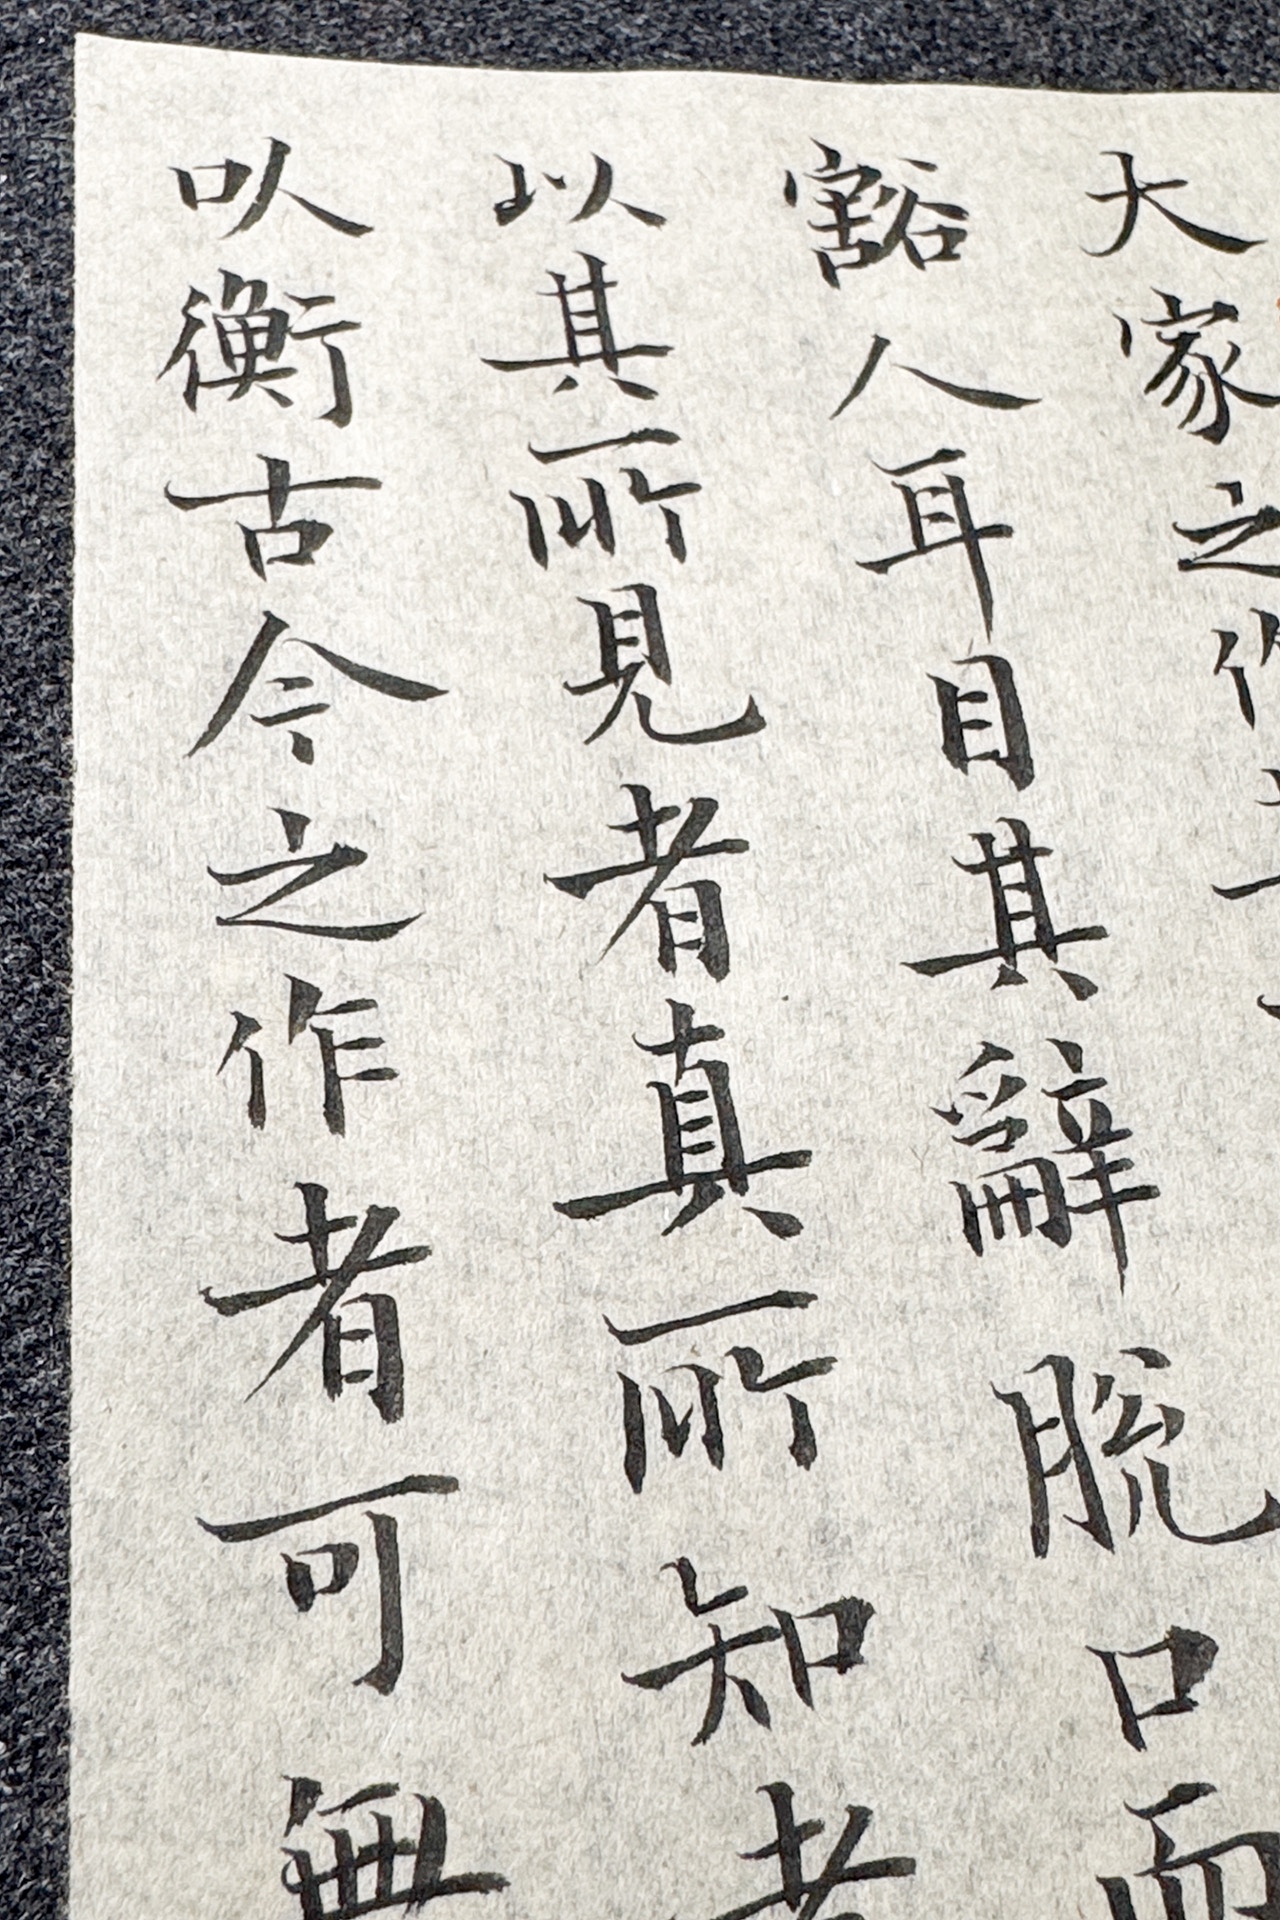 大家之作者
豁人耳目其辭脫口而
以其所見者真所知者
以衡古今之作者可無